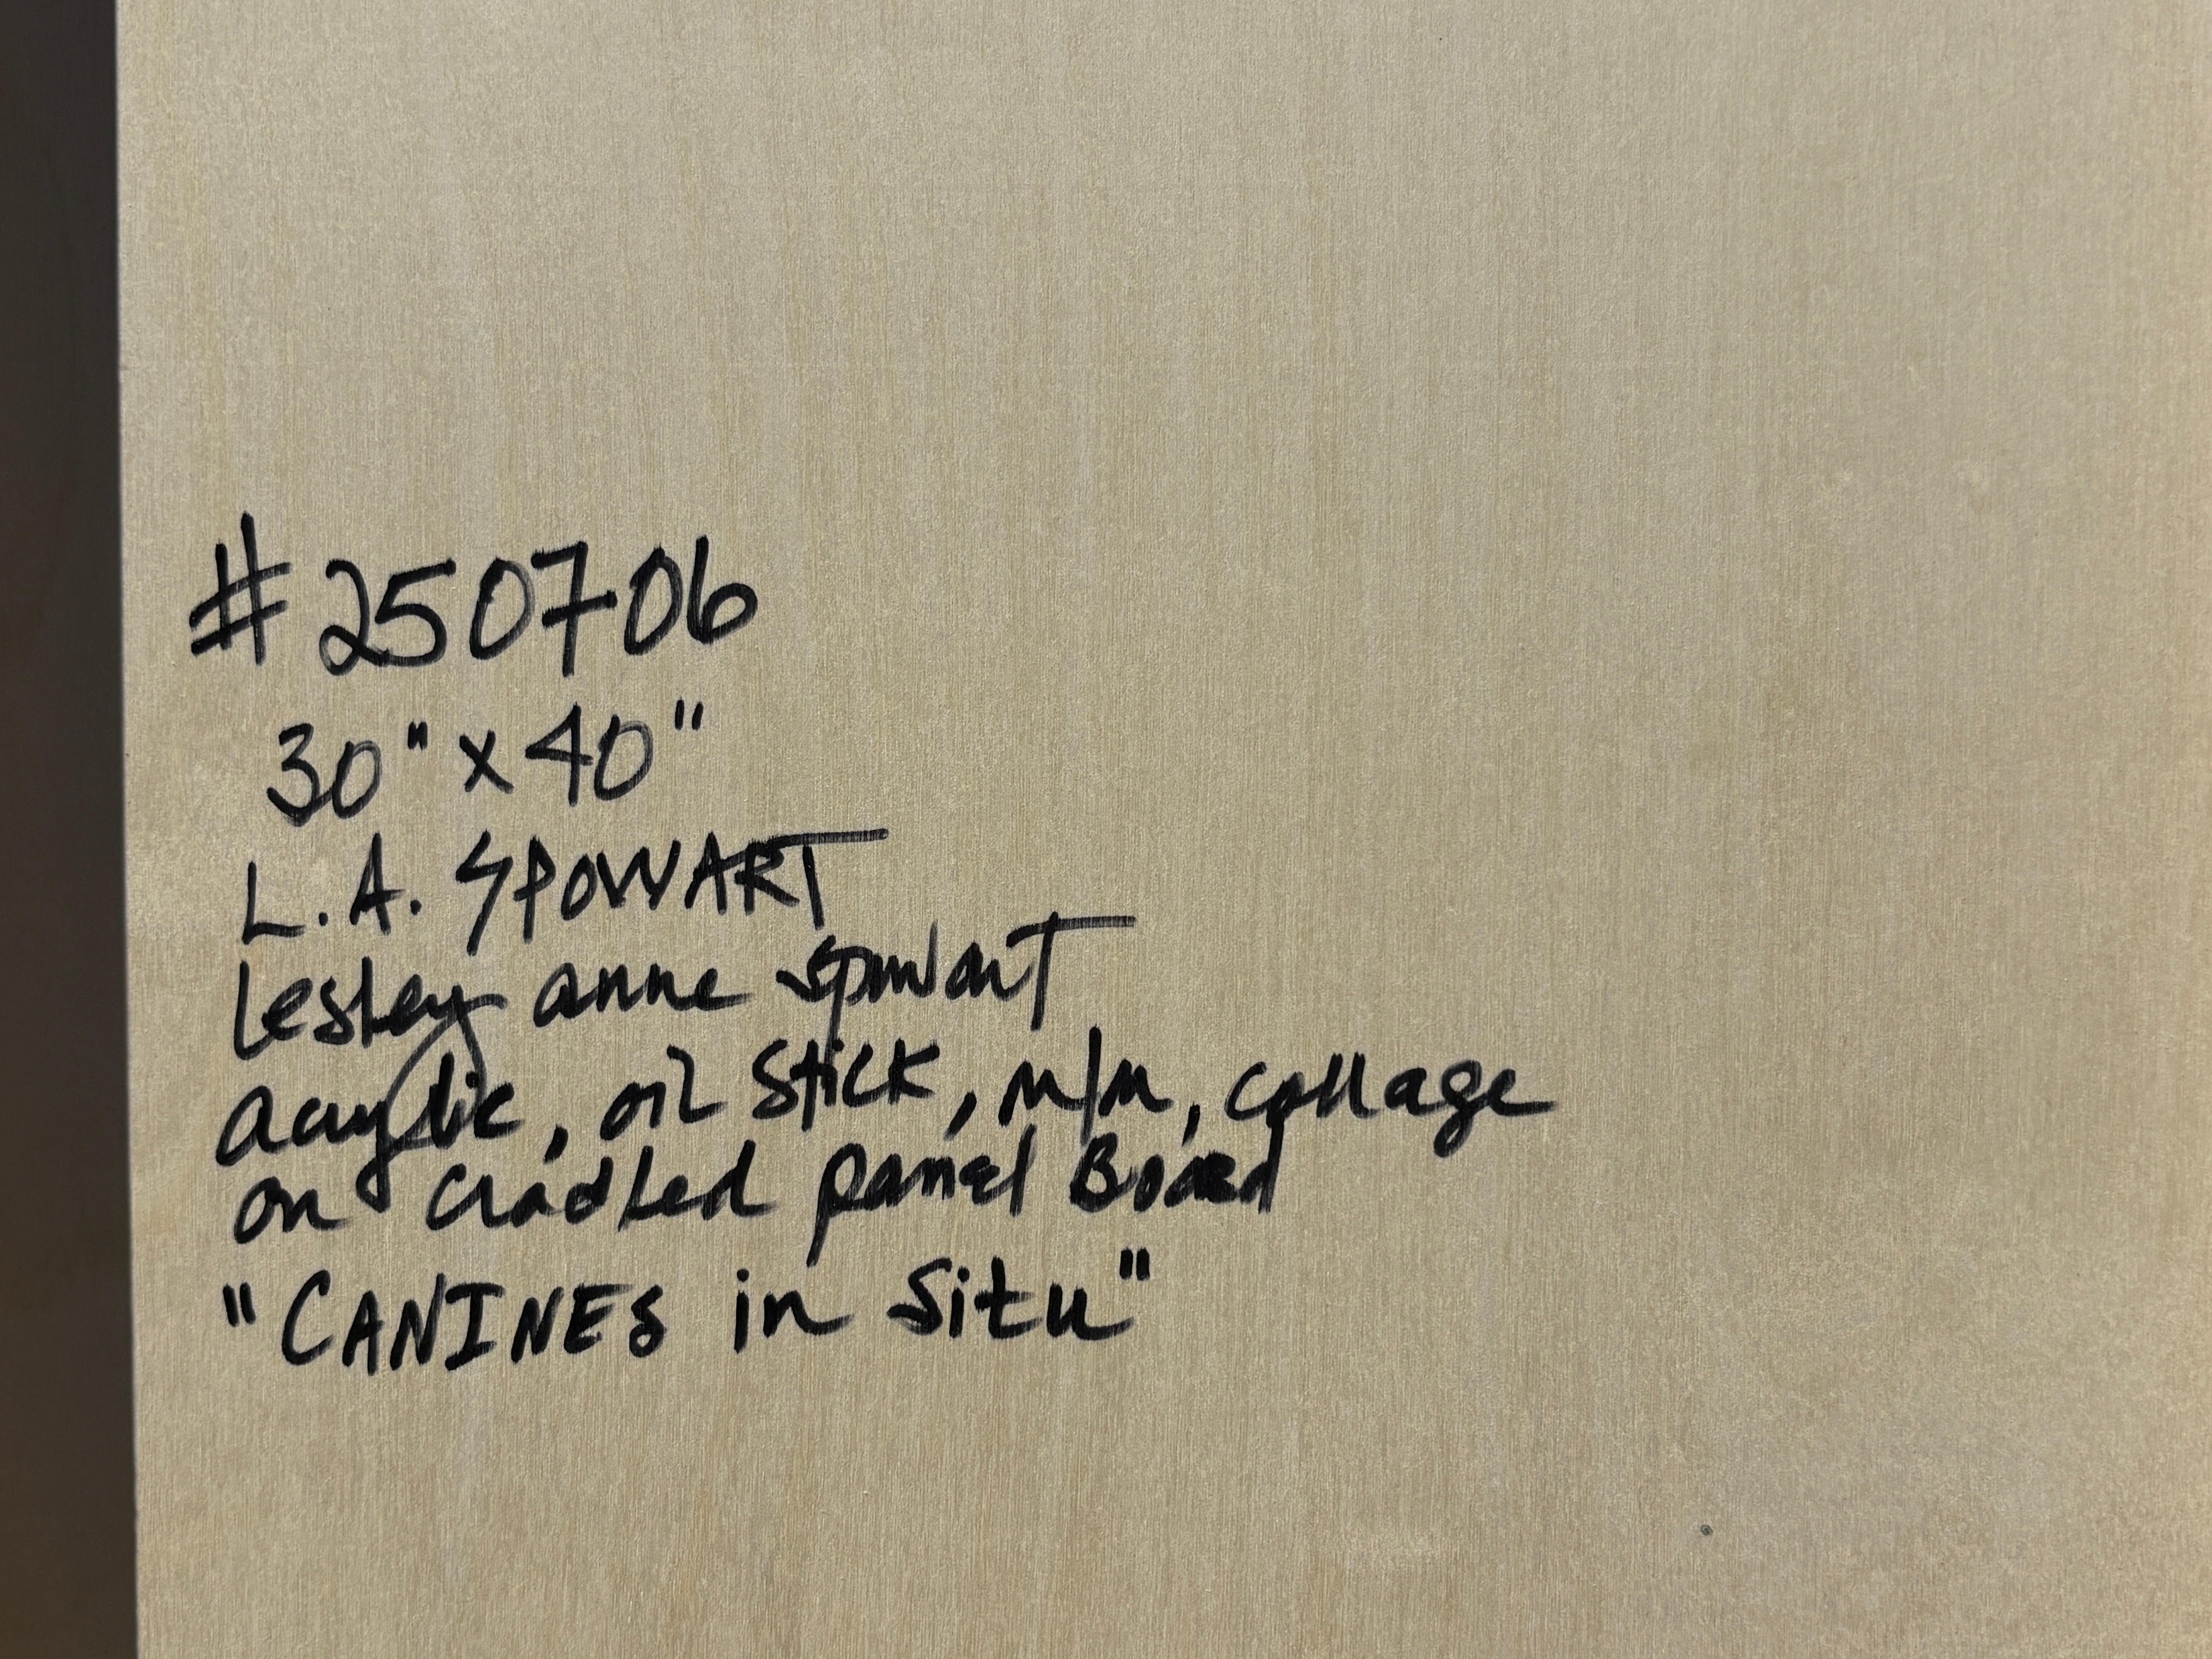 #250706
30" x 40"
L.A. SPOWART
Lesley anne spowart
acrylic, oil stick, m/m, collage
on cradled panel Board
"CANINES in situ"